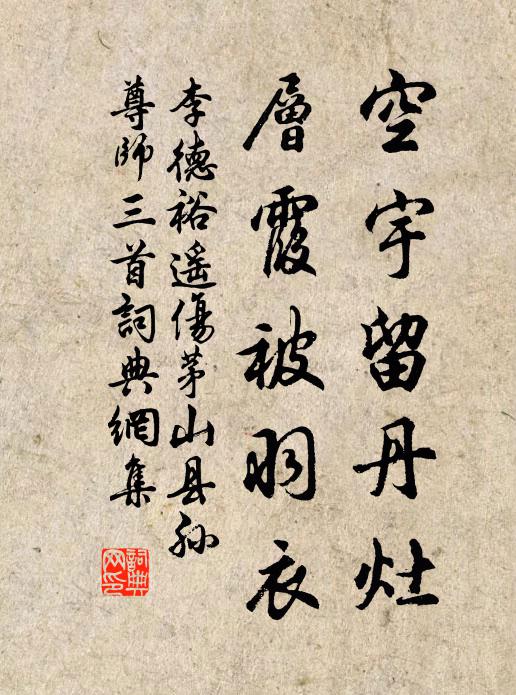 空宇留丹灶
層霞被羽衣
李德裕遥傷茅山县孙
尊師三首詞典網集
詞典網印